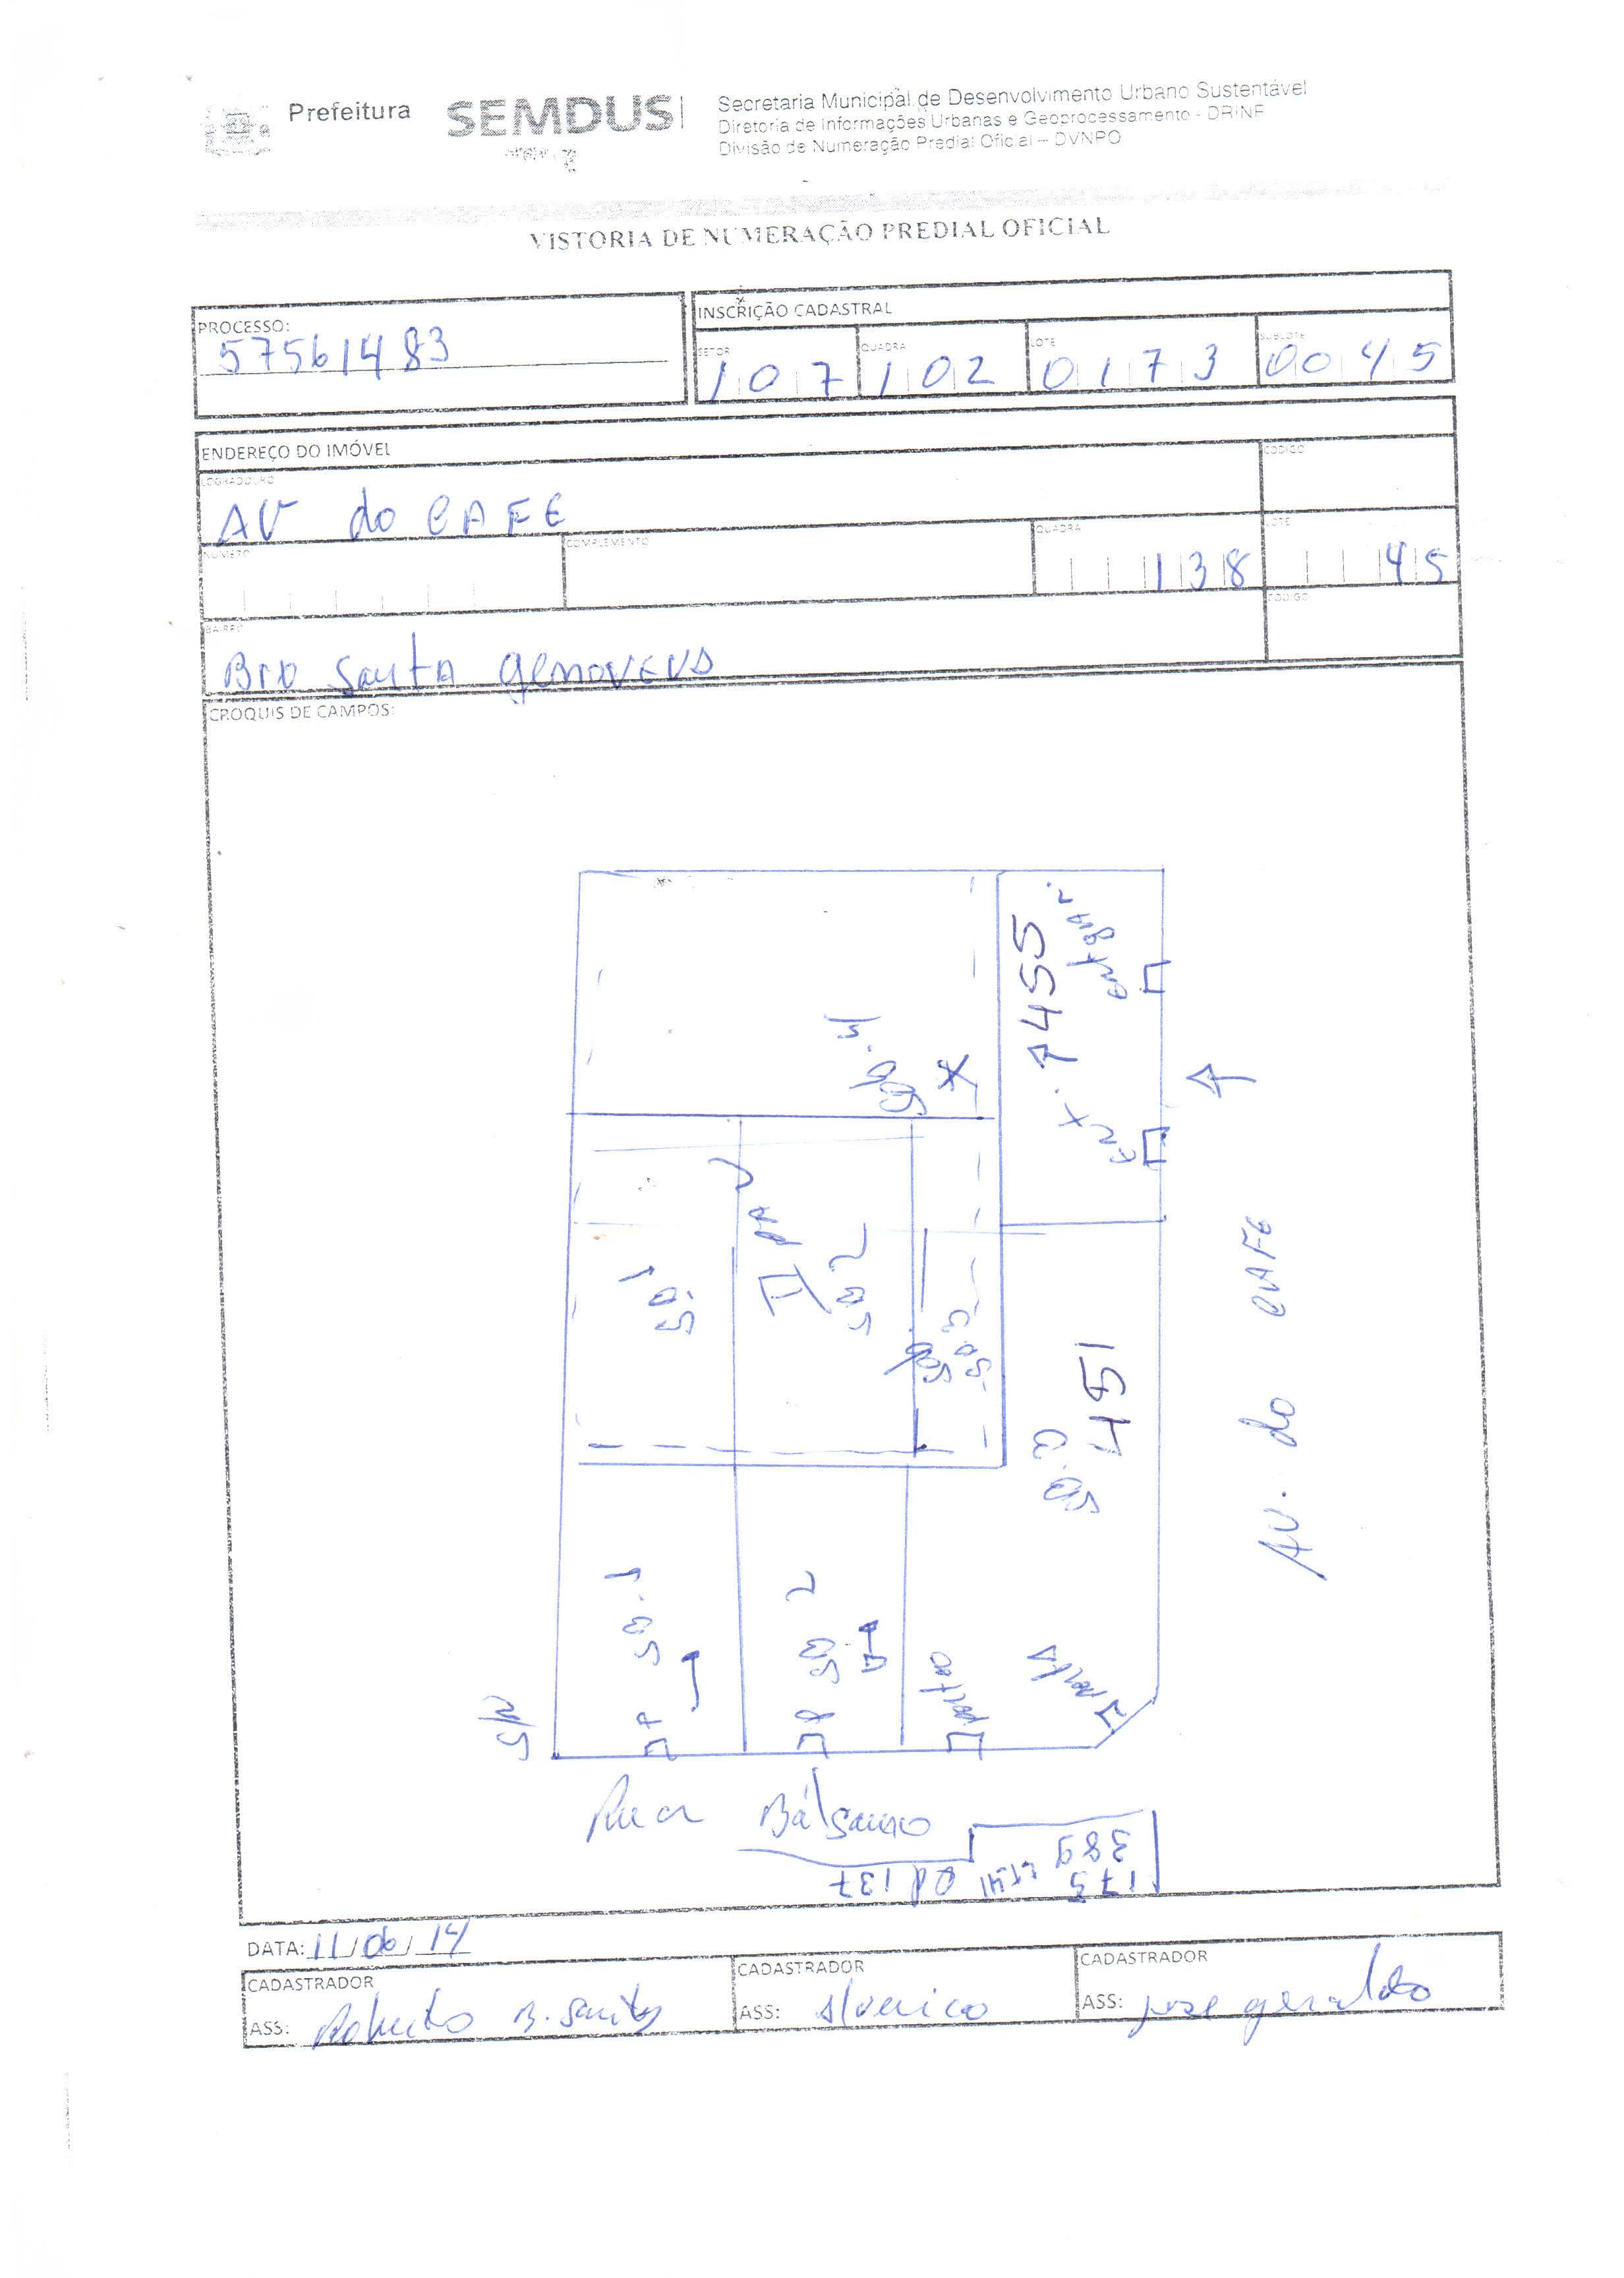 Prefeitura
SEMDUS
Secretaria Municipal de Desenvolvimento Urbano Sustentável
Diretoria de Informações Urbanas e Geoprocessamento - DRINF
Divisão de Numeração Predial Oficial – DVNPO
VISTORIA DE NUMERAÇÃO PREDIAL OFICIAL
PROCESSO:
57561483
INSCRIÇÃO CADASTRAL
SETOR QUADRA LOTE SUBLOTE
107 102 0173 0045
ENDEREÇO DO IMÓVEL
LOGRADOURO CÓDIGO
AV do CAFE
NÚMERO COMPLEMENTO QUADRA LOTE
138 45
BAIRRO CÓDIGO
Bro Santa genoveva
CROQUIS DE CAMPOS:
ent guar.
ent. 7455
SQ. 4
X
II PAV
SQ. 1
SQ 2
SQ. 3
SQ. 3
451
AV. do CAFE
SQ. 1
SQ 2
portao
porta
S/N
P
P
Rua Bálsamo
389
175 Lt 41 Qd 137
DATA: 11/06/14
CADASTRADOR CADASTRADOR CADASTRADOR
ASS: Roberto B. Santos ASS: ASS: jose geraldo